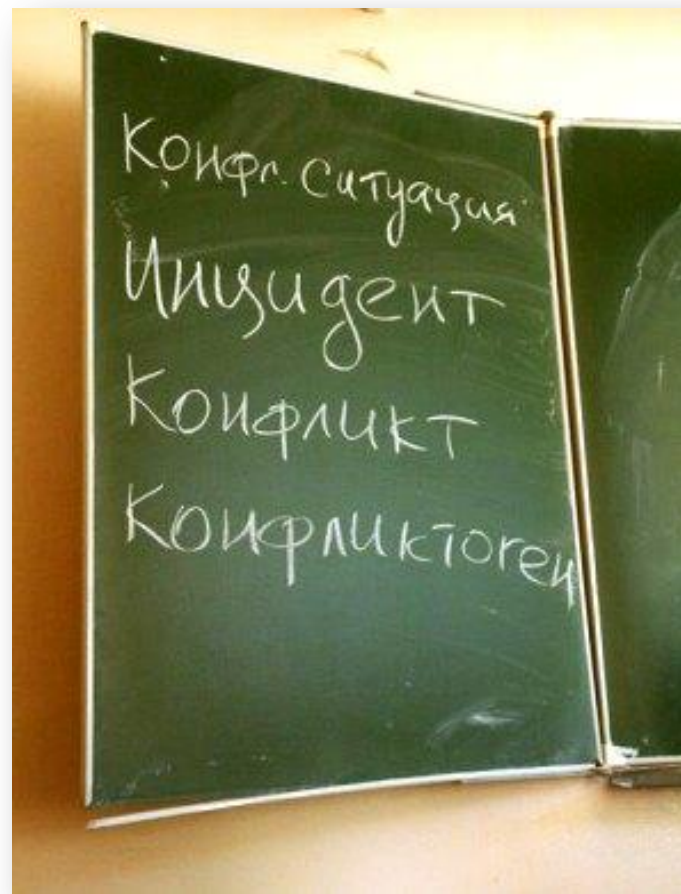 Конфл. ситуация
Инцидент
Конфликт
Конфликтоген